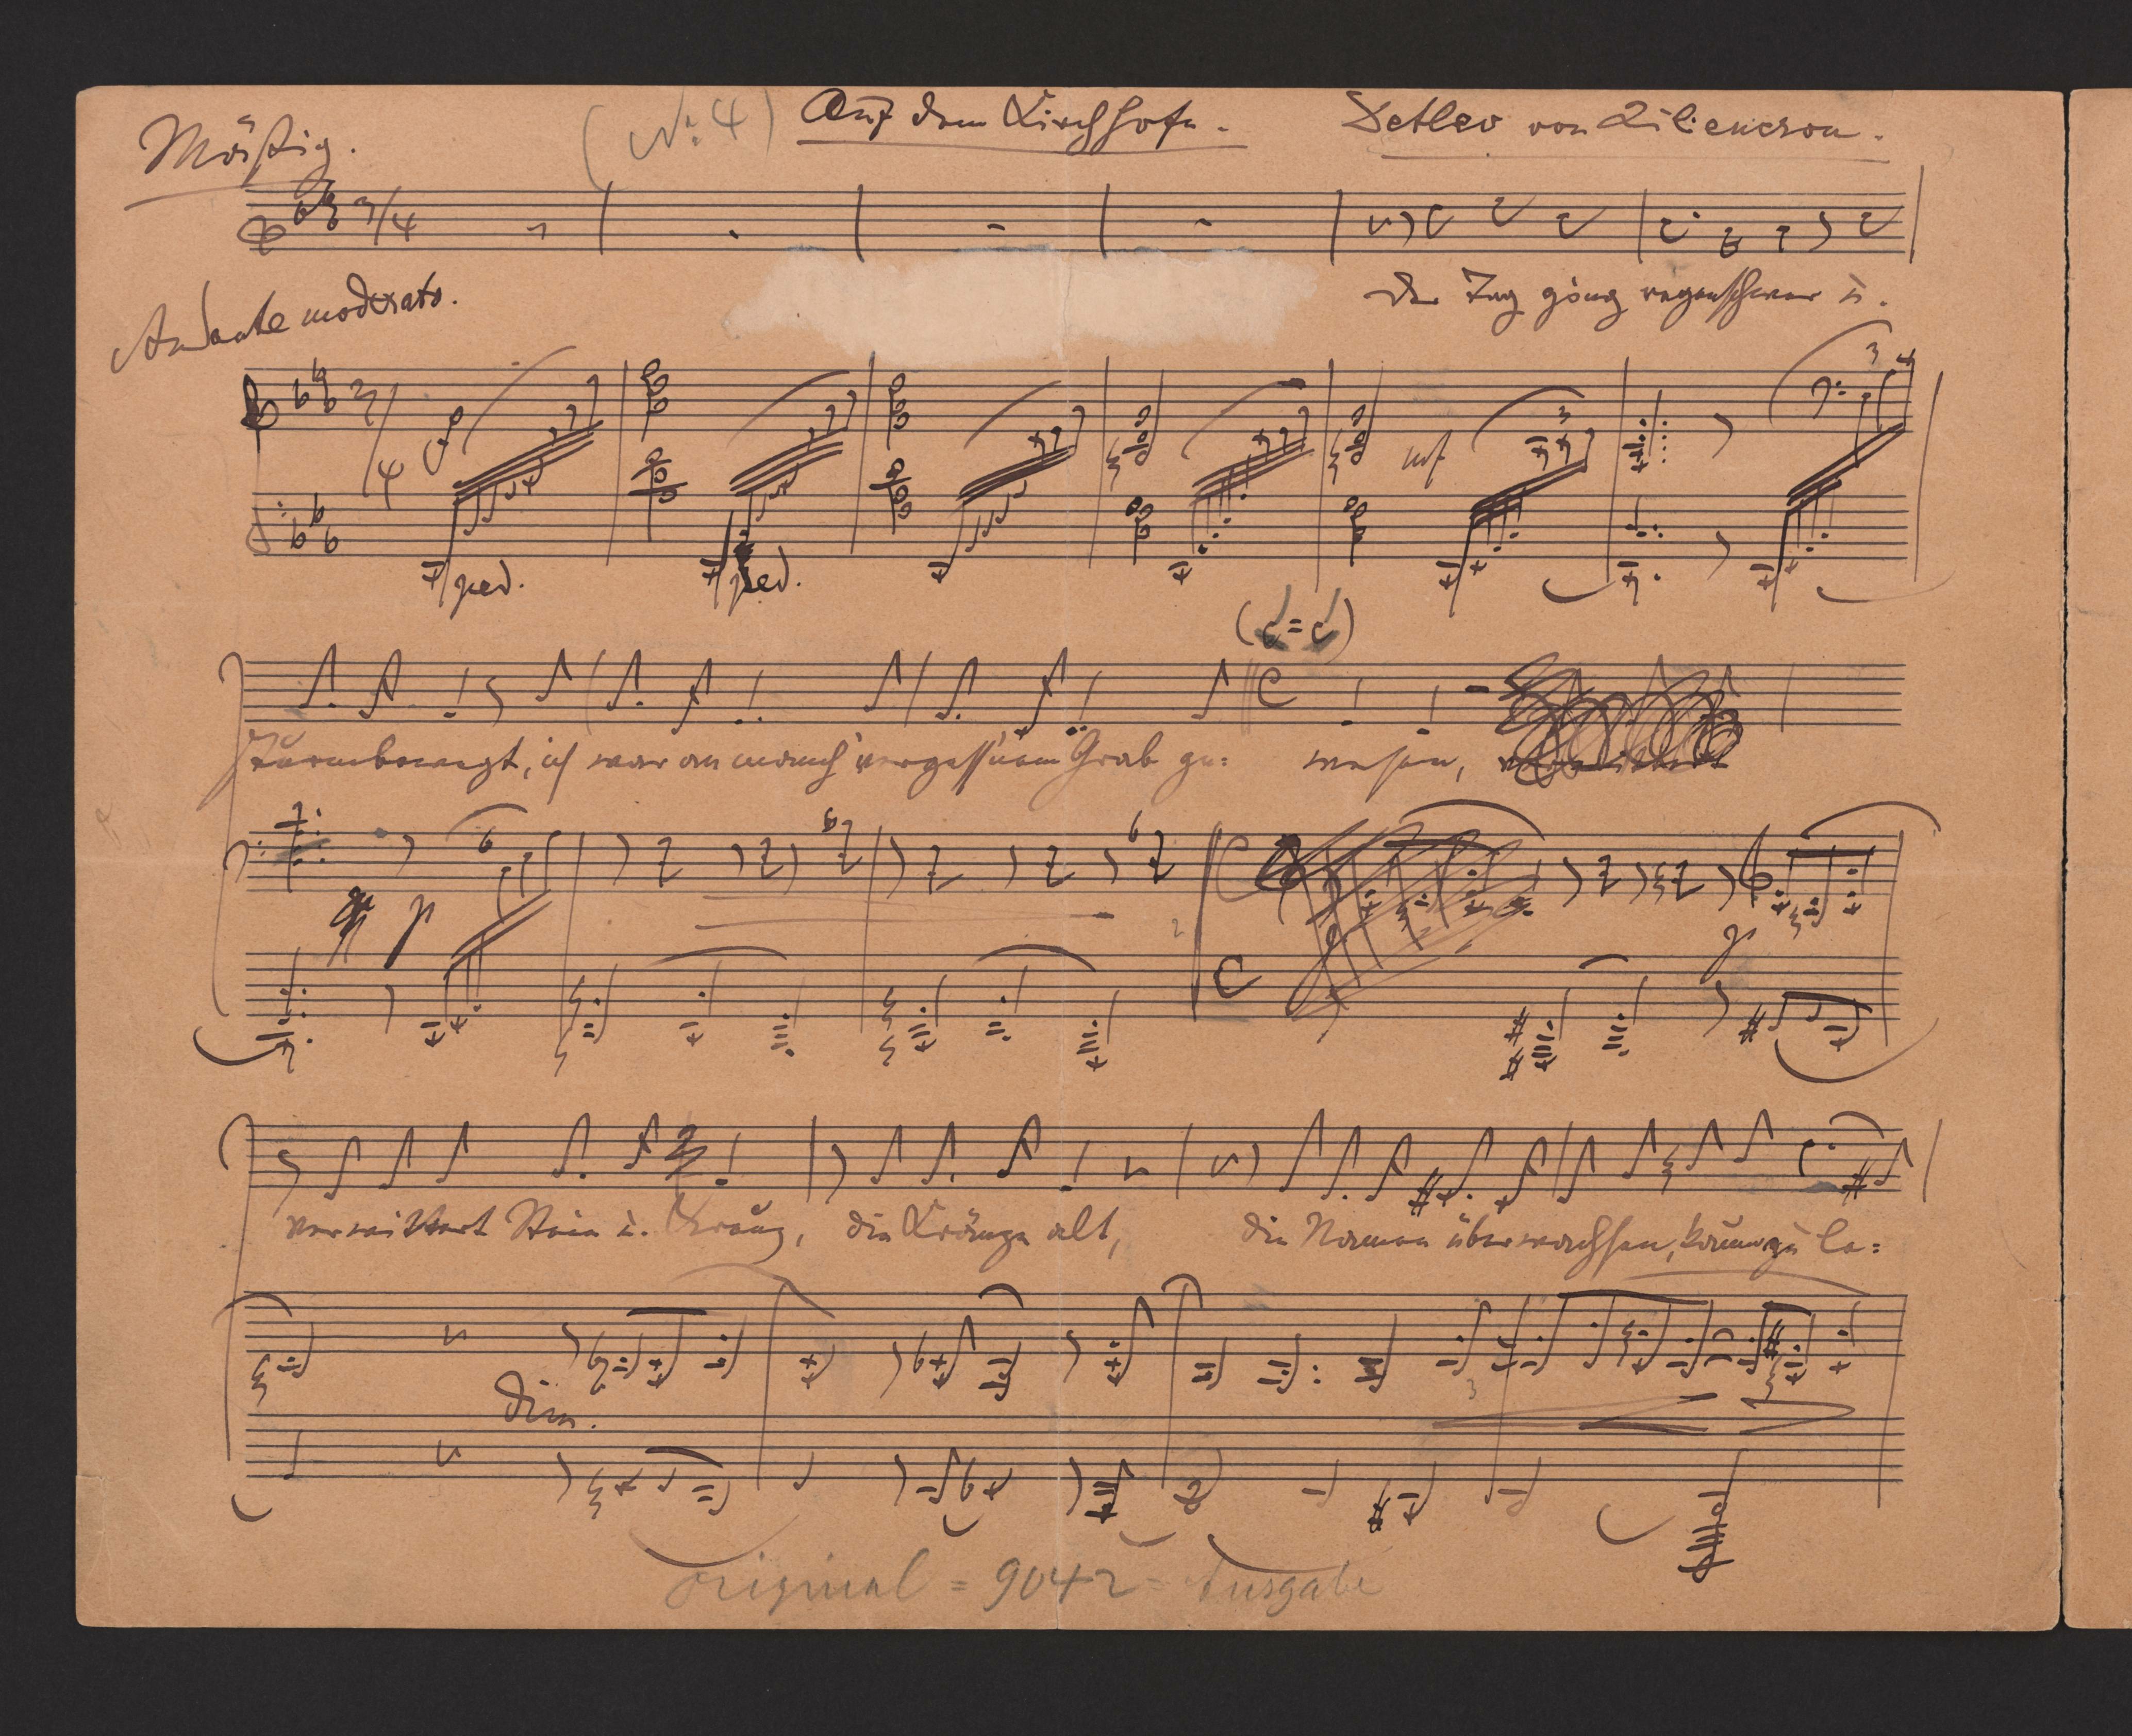 Mäßig. (No. 4) Auf dem Kirchhofe. Detlev von Liliencron.
3/4
Andante moderato.
Der Tag ging regenschwer u.
3/4 mf 3 3
ped. ped.
sturmbewegt, ich war an manch' vergess'nem Grab ge= wesen, verwittert
p p
verwittert Stein u. Kreuz, die Kränze alt, die Namen überwachsen, kaum zu le=
dim. 3
original = 9042 = Ausgabe